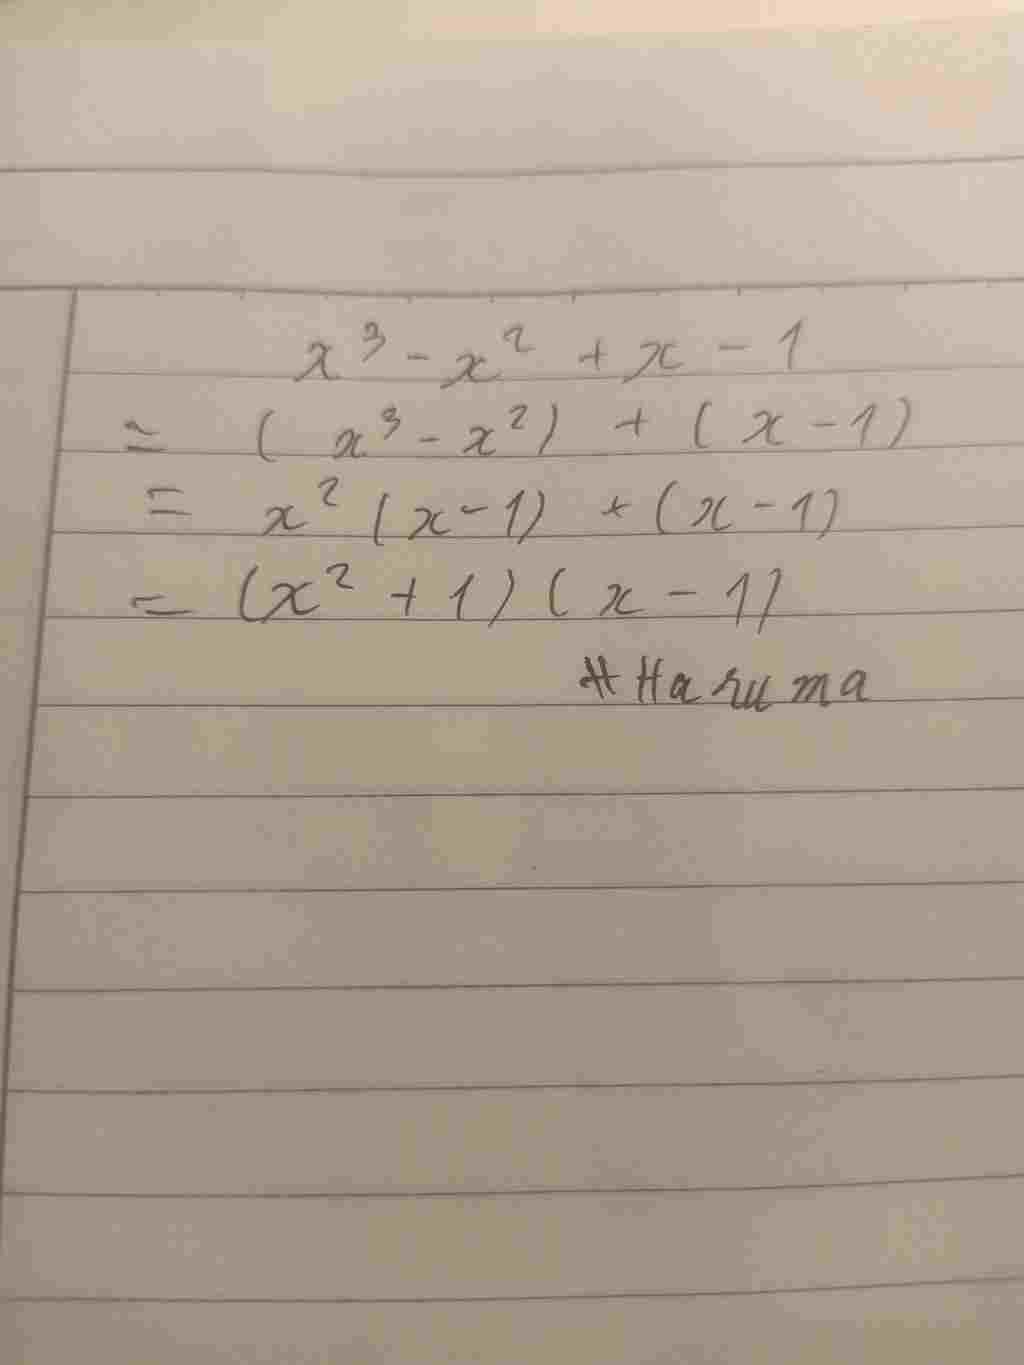 x³ - x² + x - 1
= (x³ - x²) + (x - 1)
= x² (x - 1) + (x - 1)
= (x² + 1) (x - 1)
#Haruma